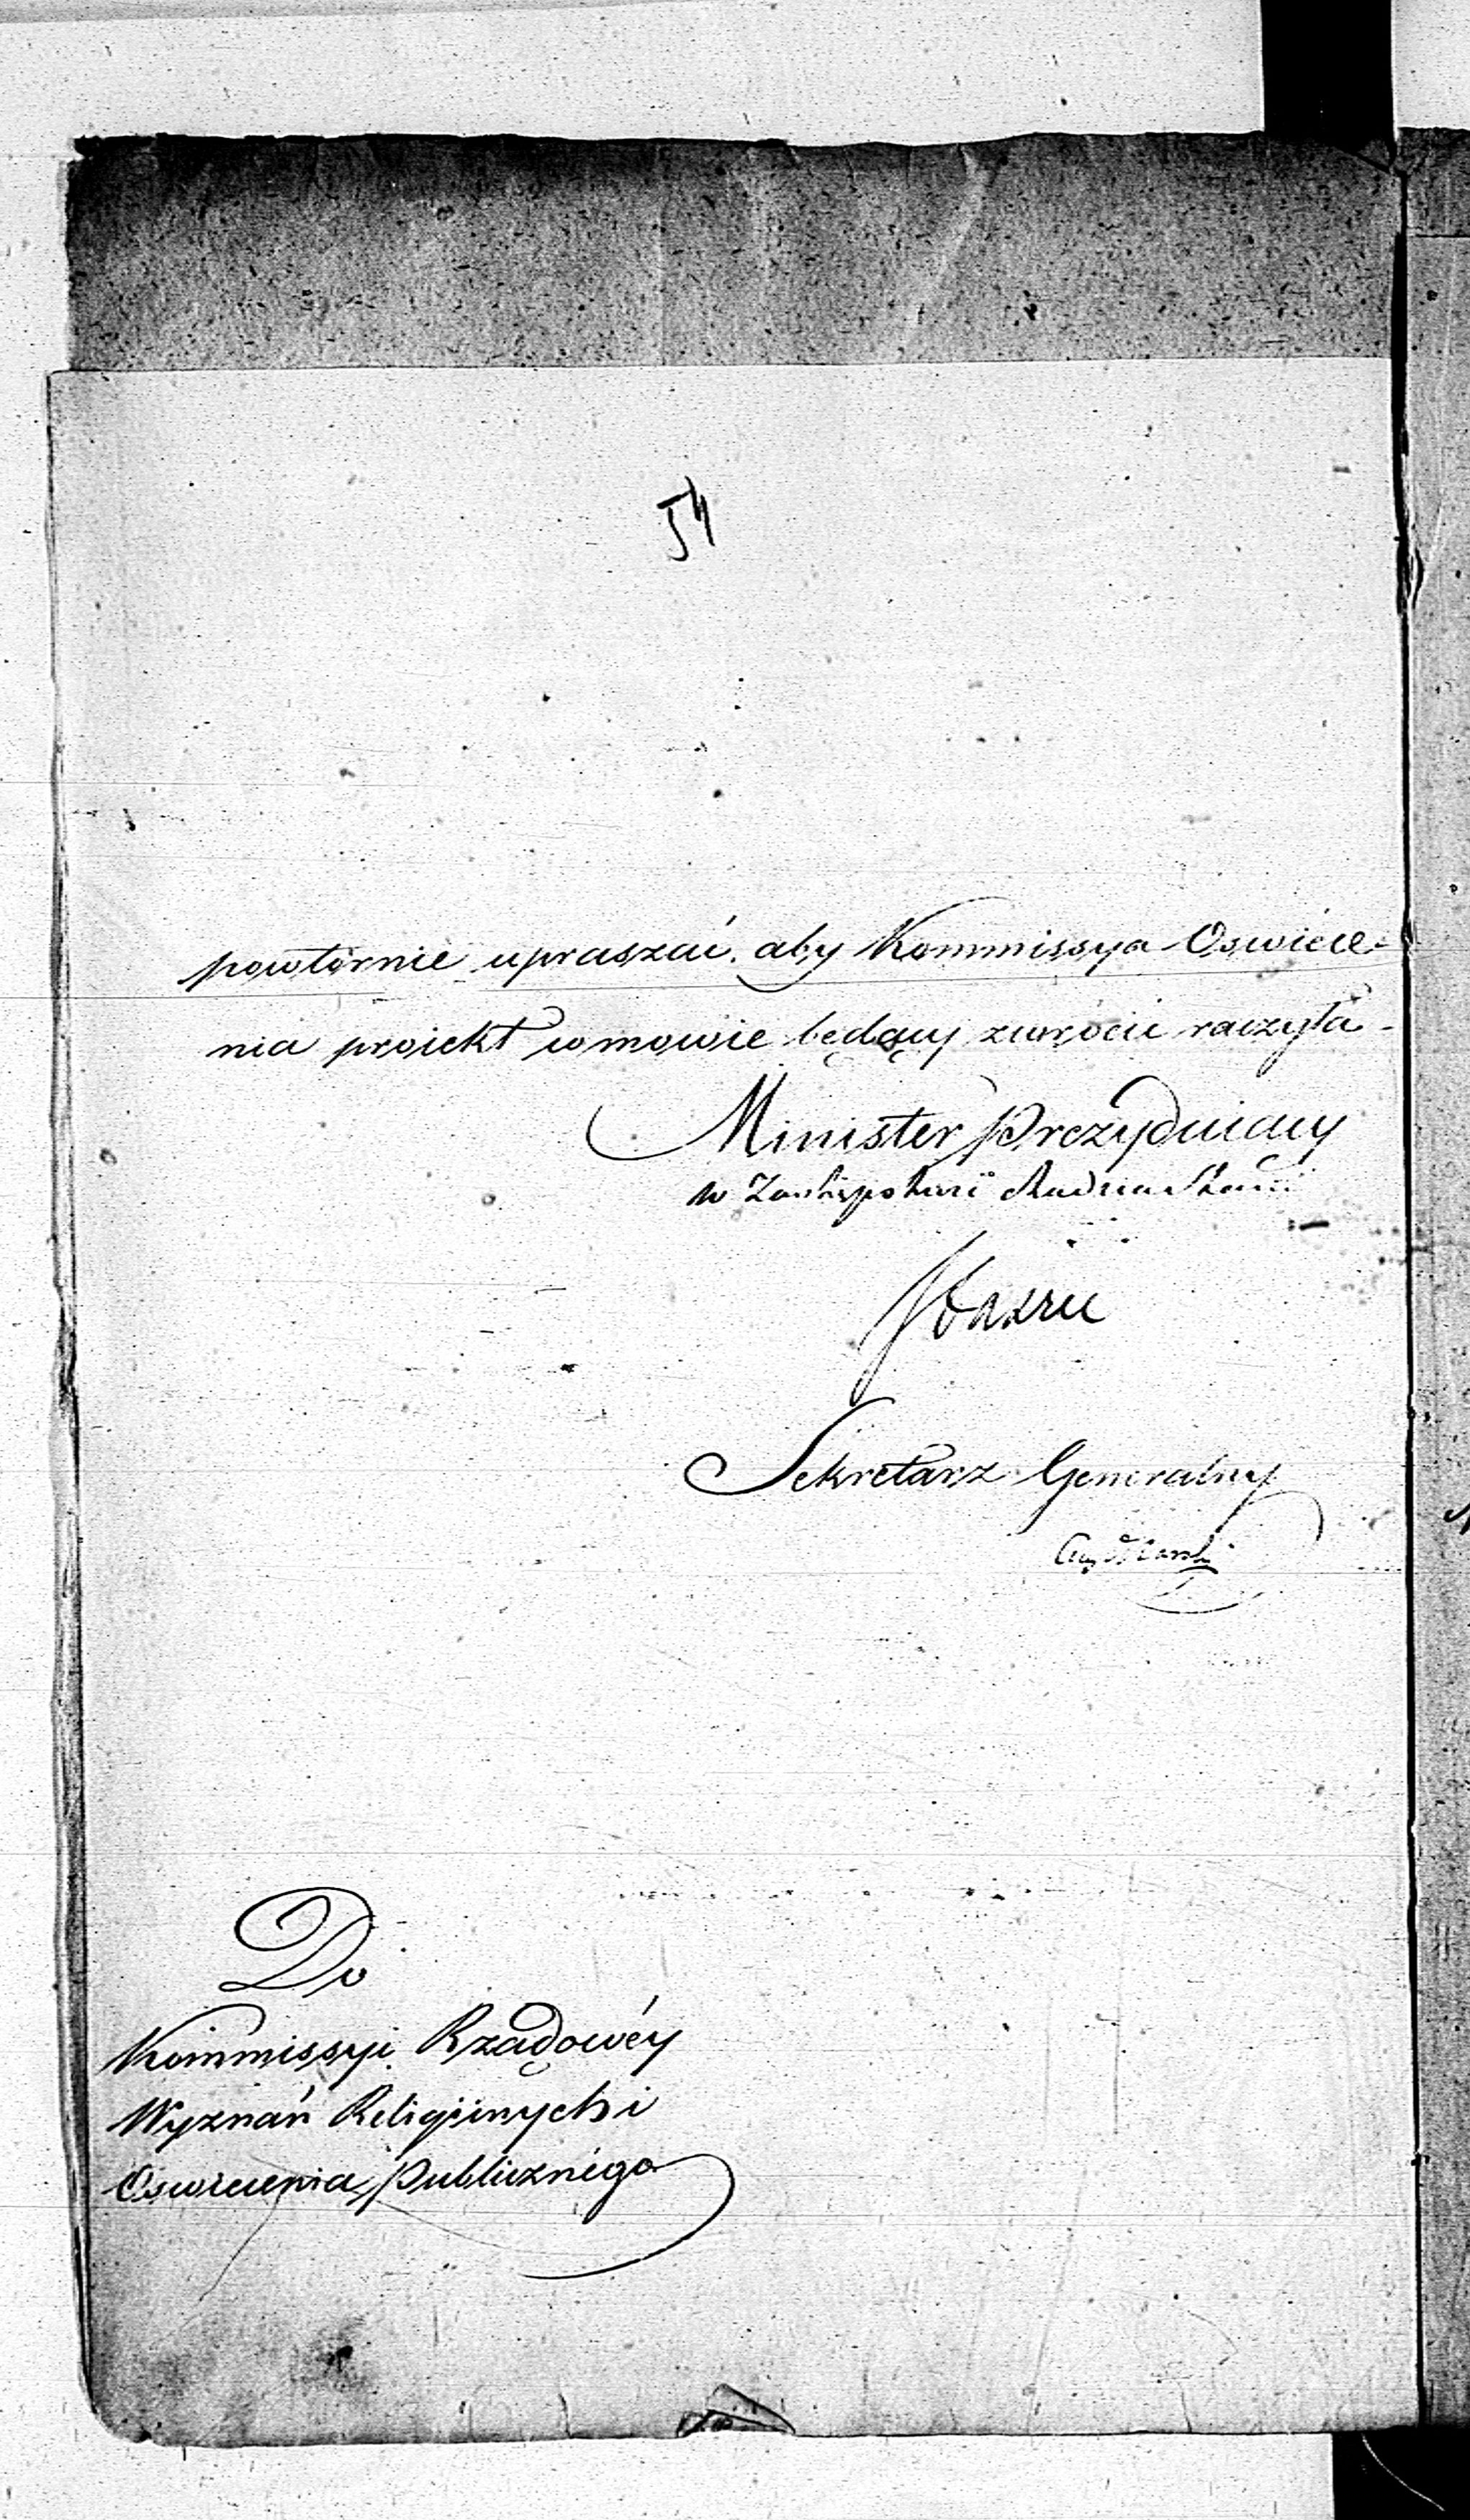 54
powtórnie upraszać, aby Kommissya Oswiéce-
nia proiekt w mowie będący zwrócić raczyła -
Minister Prezyduiący
w Zastępstwie Radca Stanu
Sekretarz Generalny
Do
Kommissyi Rządowéy
Wyznań Religijnych i
Oswiecenia Publicznégo